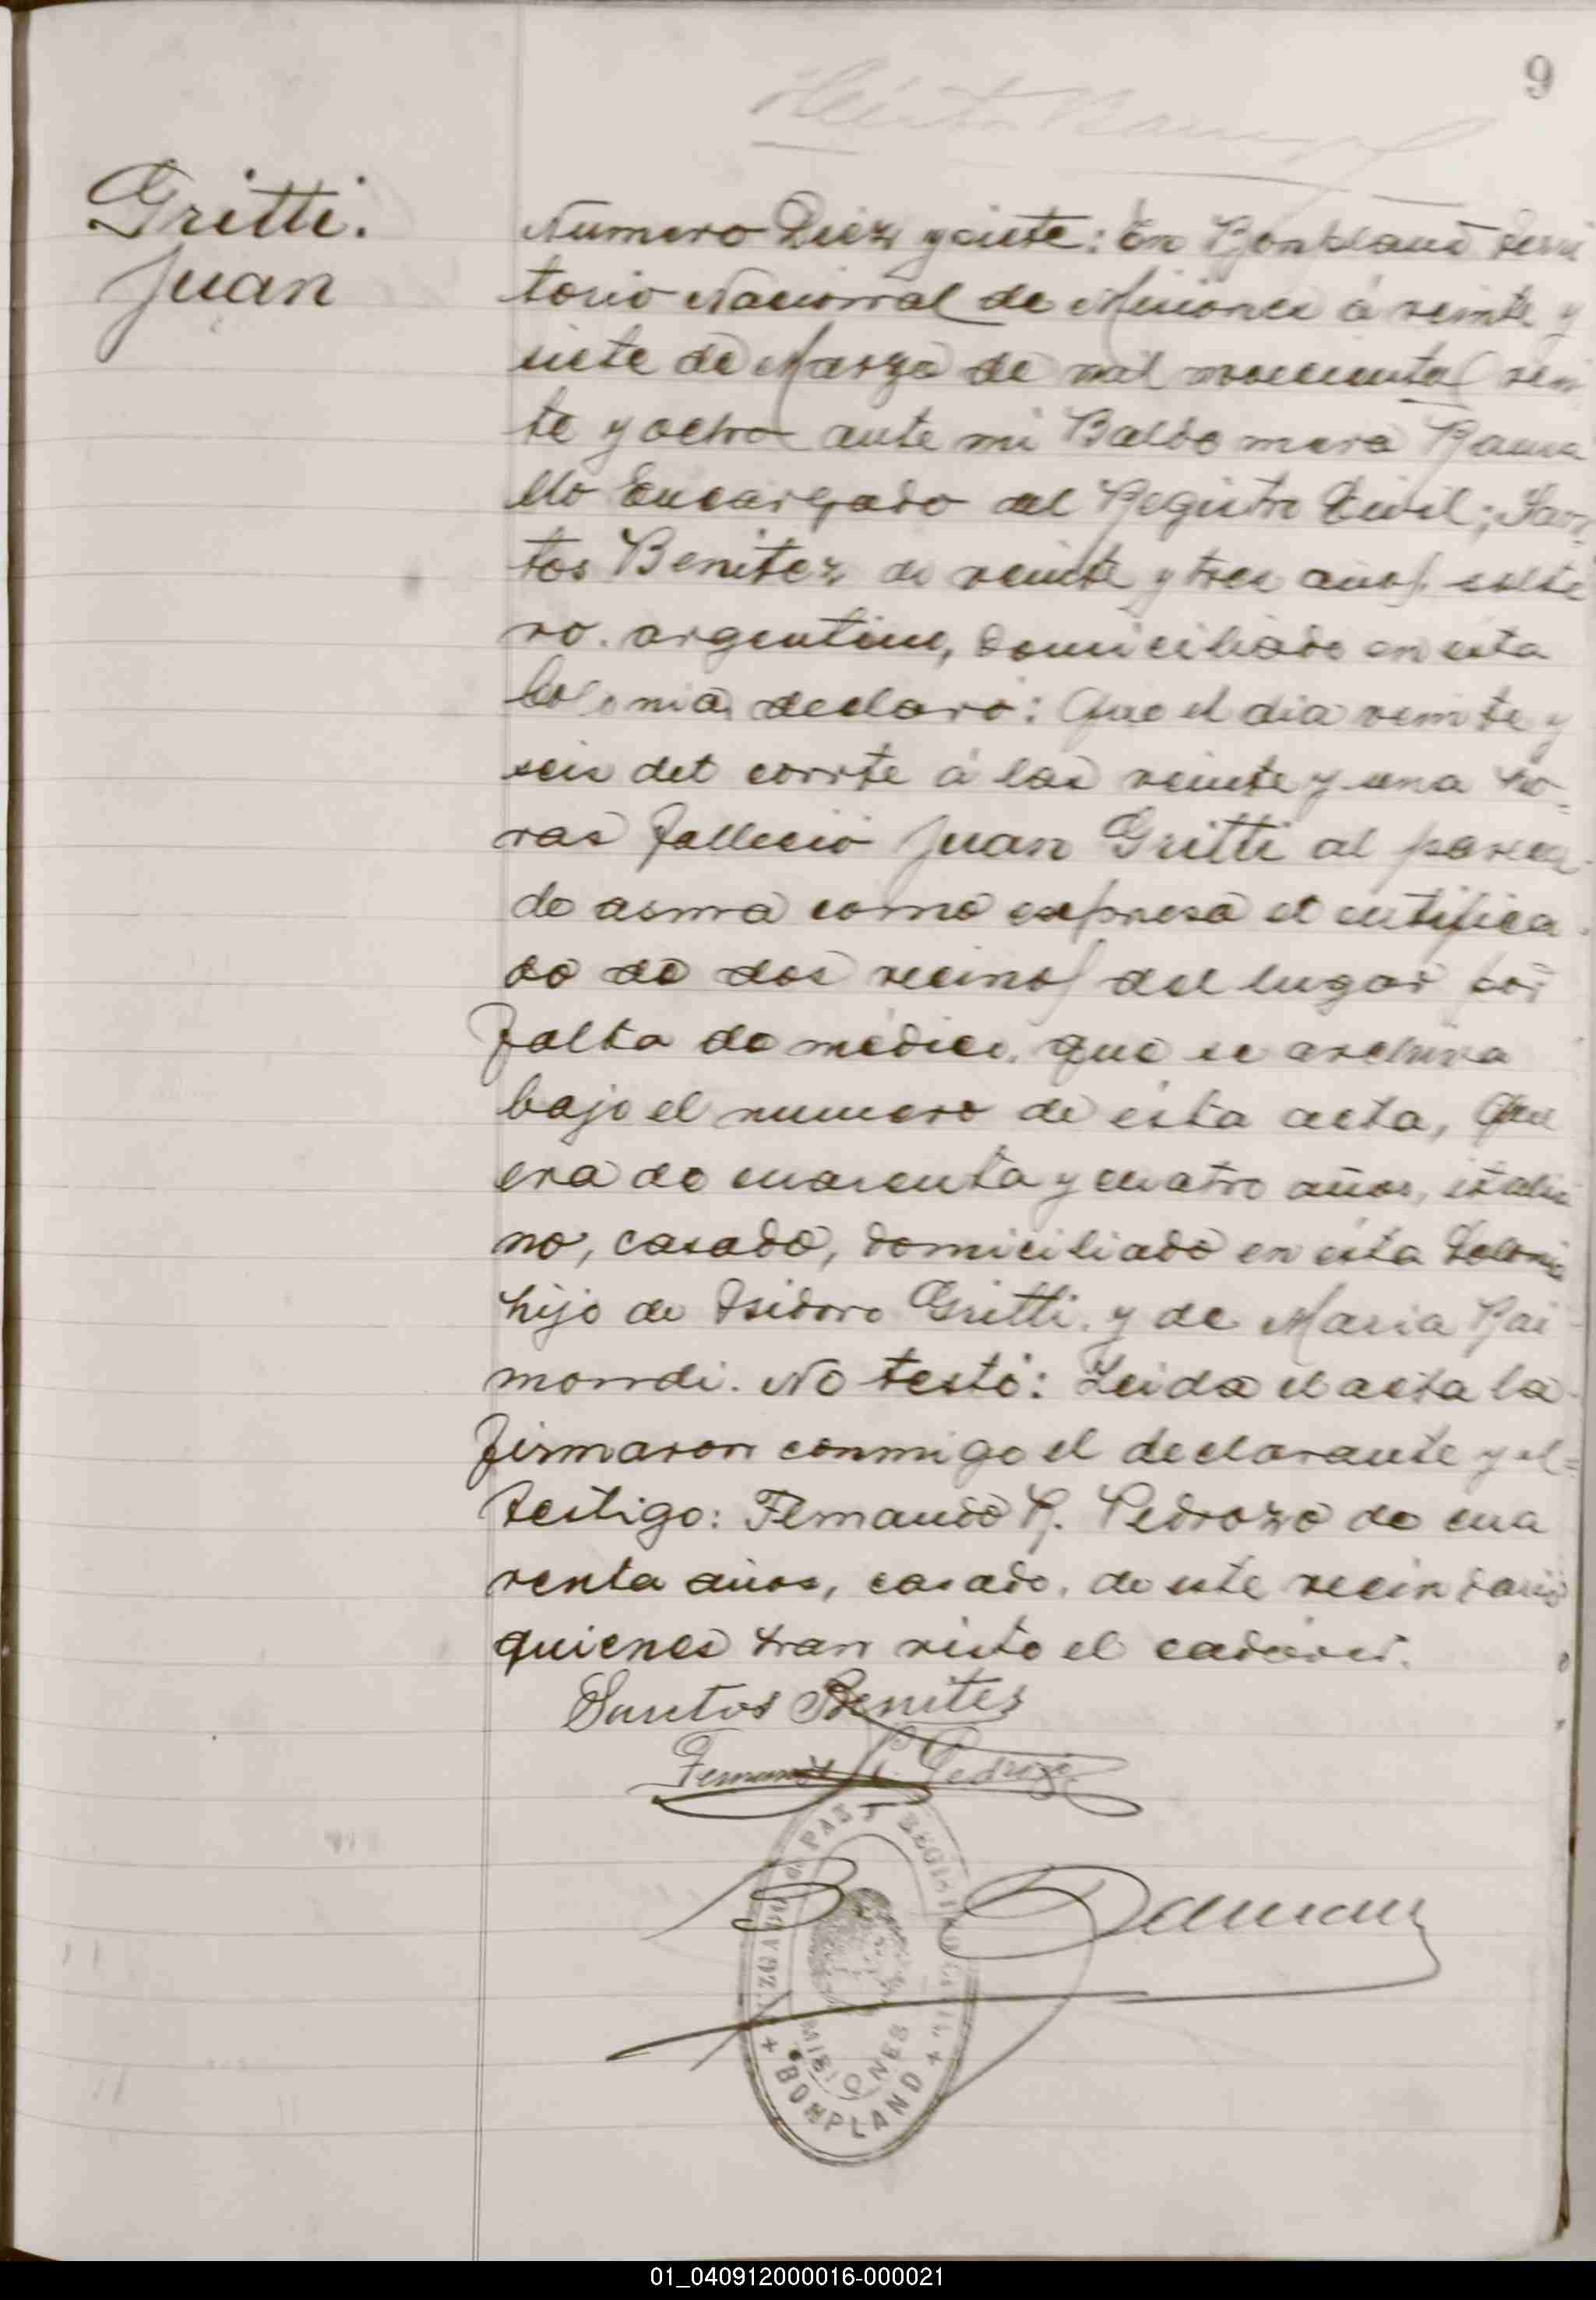 9
Gritti.
Juan
Numero Diez y siete: En Bonpland Terri
torio Nacional de Misiones á veinte y
siete de Marzo de mil novecientos vein
te y ocho ante mi Baldomero
Encargado del Registro Civil; San
tos Benitez de veinte y tres años, solte
ro. argentino, domiciliado en ésta
Colonia, declaró: Que el dia veinte y
seis del corrte á las veinte y una ho=
ras falleció Juan Gritti al parecer
de asma como expresa el certifica
do de dos vecinos del lugar por
falta de médico, que se archiva
bajo el numero de ésta acta, Que
era de cuarenta y cuatro años, italia
no, casado, domiciliado en ésta Colonia
hijo de Isidoro Gritti, y de Maria Rai
mondi. No testó: Leida el acta la
firmaron conmigo el declarante y el=
testigo: Fernando R. Pedrozo de cua
renta años, casado, de este vecindario
quienes han visto el cadáver.
Santos Benites
Fernando R. Pedrozo
B
PAZ Y REGISTRO CIVIL
MISIONES
+ BONPLAND +
01_040912000016-000021